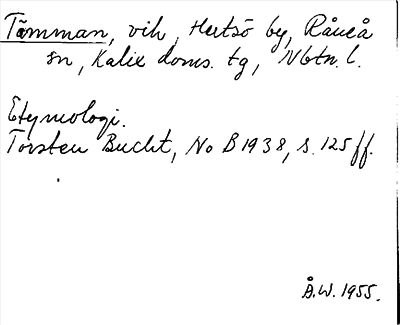 Tämman, vik, Hertsö by, Råneå
sn, Kalix doms. tg, Nbtn. l.
Etymologi.
Torsten Bucht, No B 1938, s. 125 ff.
Å.W. 1955.